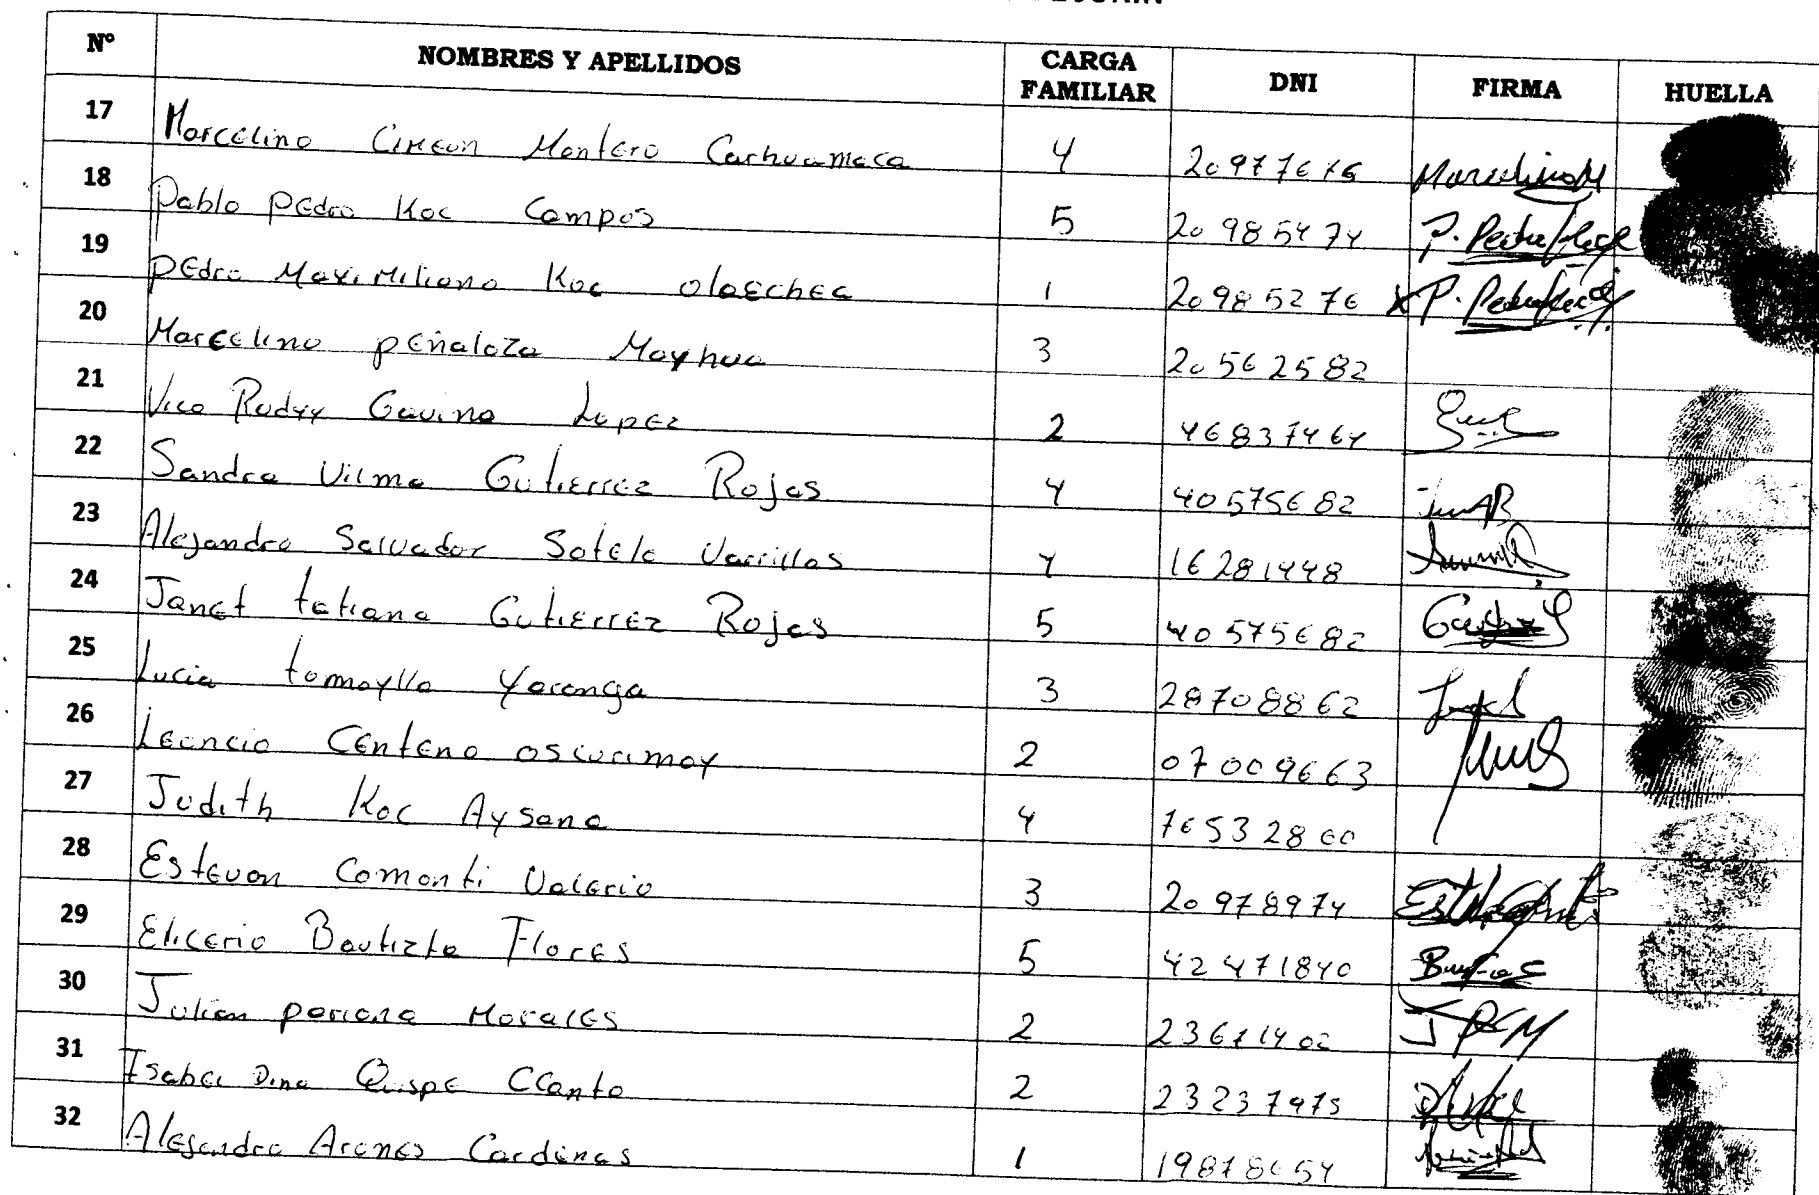 N° NOMBRES Y APELLIDOS CARGA FAMILIAR DNI FIRMA HUELLA
17 Marcelino Cimeon Montero Carhuamaca 4 20977676 Marcelino M
18 Pablo Pedro Koc Campos 5 20985474
19 Pedro Maximiliano Koc Olaechea 1 20985276
20 Marcelino Peñaloza Mayhua 3 20562582
21 Vico Rudyy Gavino Lopez 2 46837464
22 Sandra Vilma Gutierrez Rojas 4 40575682
23 Alejandro Salvador Sotelo Varrillas 4 16281448
24 Janet tatiana Gutierrez Rojas 5 40575682
25 Lucia tomaylla Yaranga 3 28708862
26 Leoncio Centeno oscurimay 2 07009663
27 Judith Koc Aysana 4 76532800
28 Estevan Comonti Valerio 3 20978974
29 Elicerio Bautizta Flores 5 42471840
30 Julian pariona Morales 2 23671402 JPCM
31 Isabel Dina Quispe CCanto 2 23237975
32 Alejandro Arones Cardenas 1 19878654